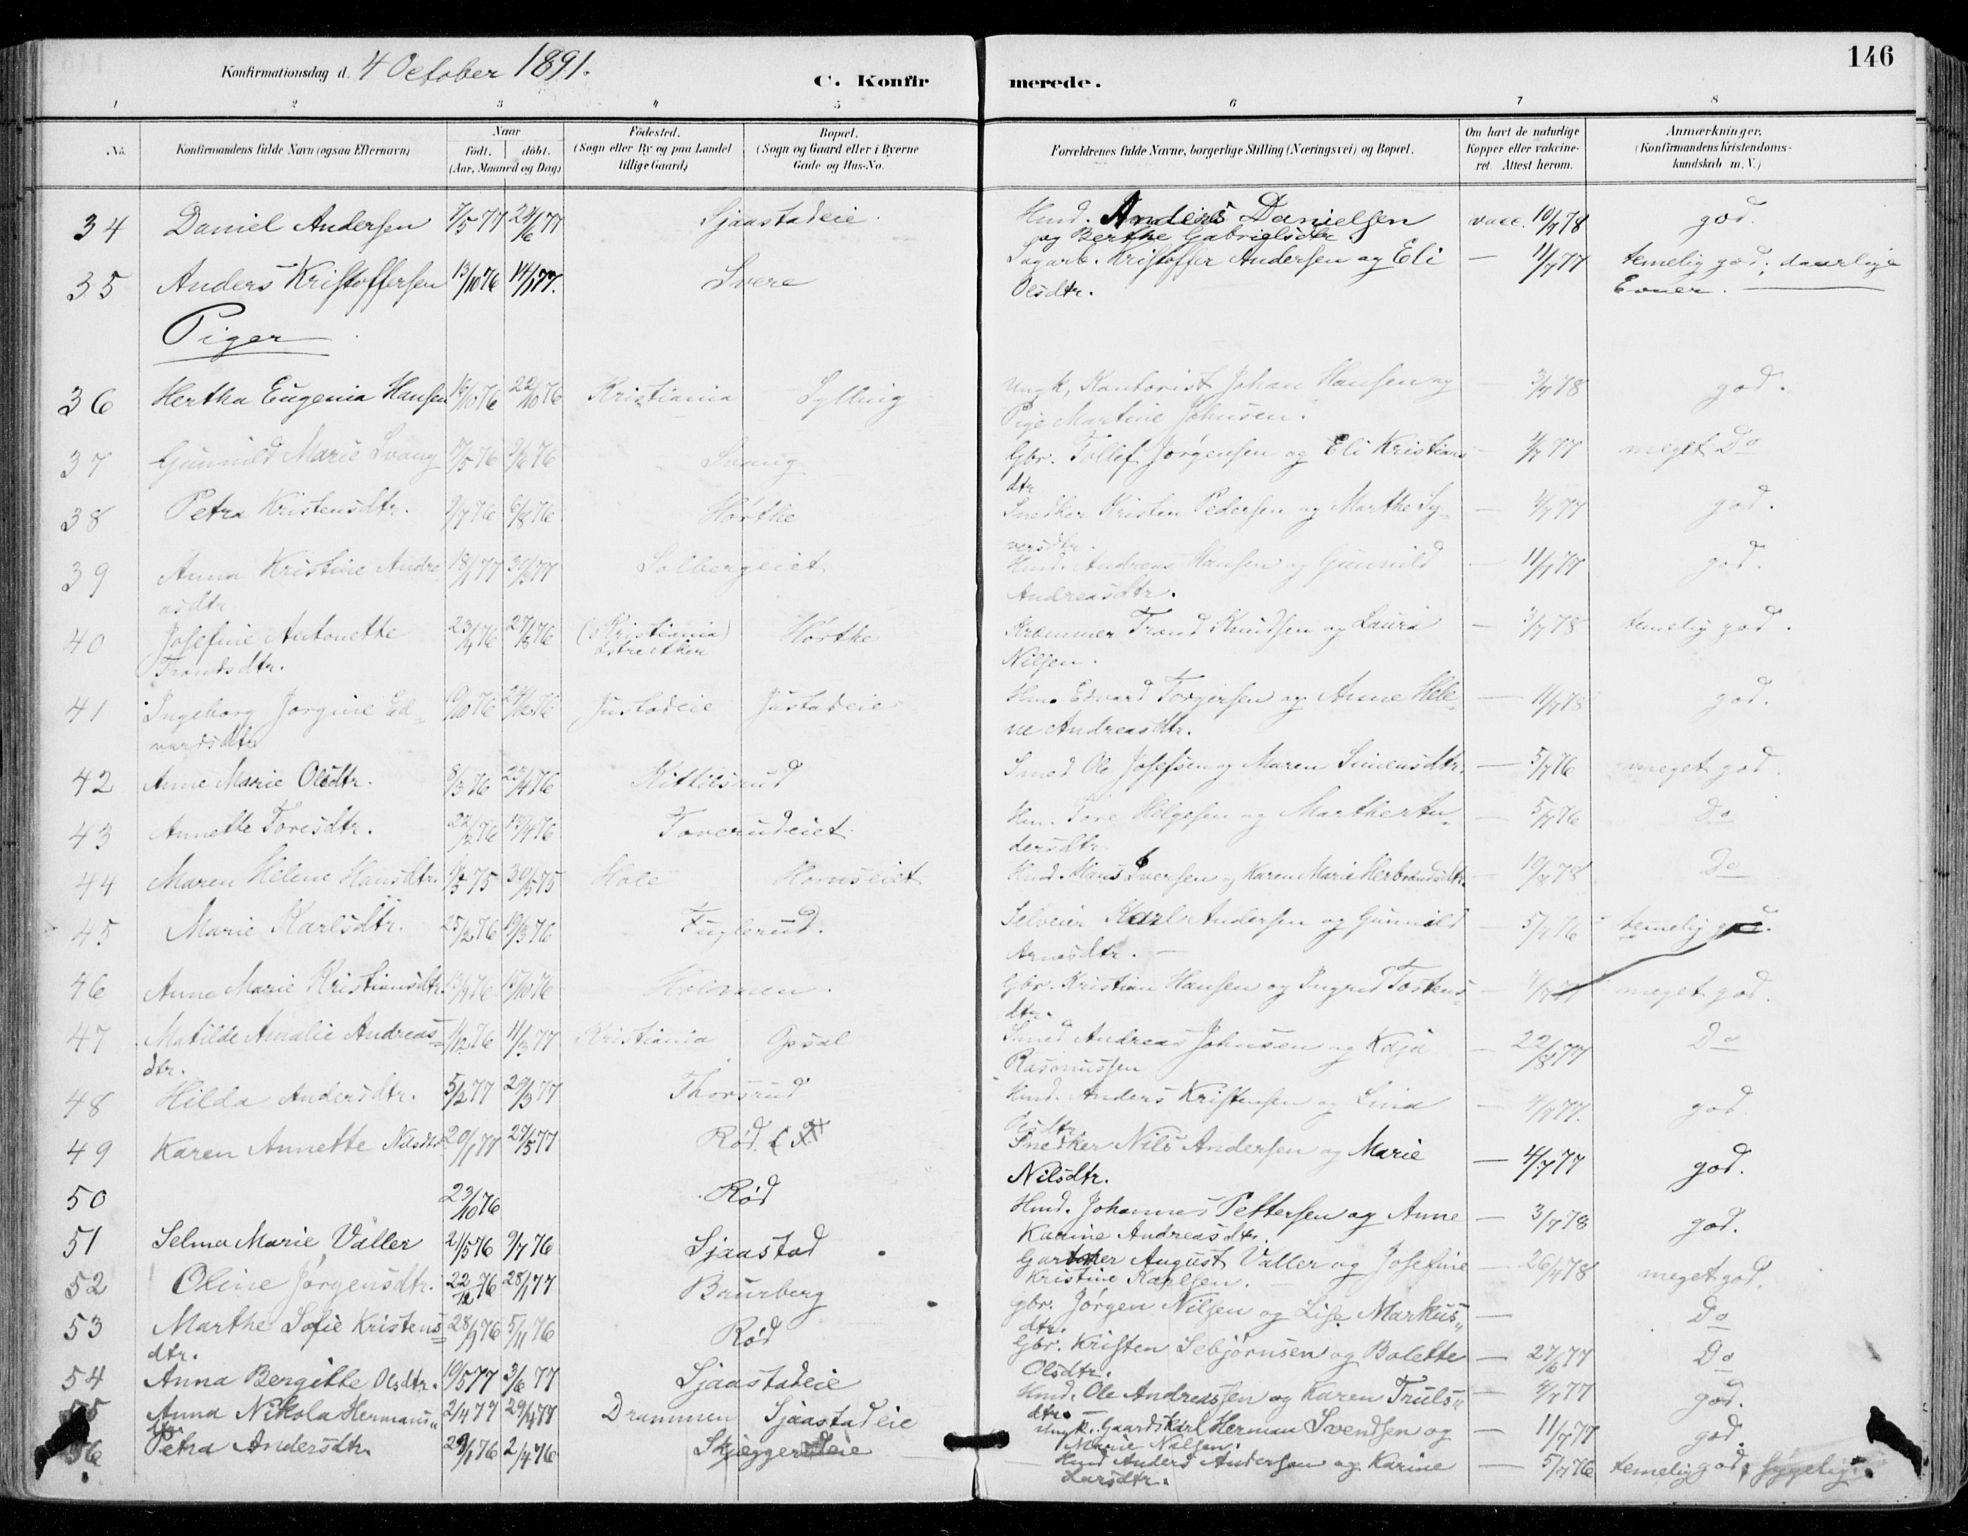 146
Konfirmationsdag d. 4 October 1891.
C. Konfirmerede.
1 2 3 4 5 6 7 8
No. Konfirmandens fulde Navn (ogsaa Efternavn) Naar født. døbt. (Aar, Maaned og Dag) Fødested. (Sogn eller By og paa Landet tillige Gaard) Bopæl. (Sogn og Gaard eller i Byerne Gade og Hus-No. Forældrenes fulde Navne, borgerlige Stilling (Næringsvei) og Bopæl. Om havt de naturlige Kopper eller vakcineret. Attest herom. Anmærkninger. (Konfirmandens Kristendomskundskab m. V.)
34 Daniel Andersen 7/5 77 24/6 77 Sjaastadeie. Hmd. Anders Danielsen vacc. 10/7 78 god.
og Berthe Gabrielsdtr.
35 Anders Kristoffersen 13/10 76 14/1 77. Svere Sagarb. Kristoffer Andersen og Eli — 11/7 77 temelig god; daarlige
Olsdtr. Evner.
Piger
36 Hertha Eugenia Hansen 16/10 76 22/10 76 Kristiania Sylling Ungk. Kontorist Johan Hansen og — 3/7 78 god.
Pige Martine Johnsen.
37 Gunnild Marie Svang 7/5 76 5/6 76 Svang Gbr. Tollef Jørgensen og Eli Kristians — 4/7 77 meget Do
dtr
38 Petra Kristensdtr. 9/7 76 6/8 76 Hørthe Snedker Kristen Pedersen og Marthe Sy- — 4/7 77 god.
versdtr.
39 Anna Kristine Andre 18/1 77 Solbergeiet Hmd. Andreas Hansen og Gunnild — 11/7 77 god.
asdtr Andreasdtr.
40 Josefine Antonette 23/4 76 27/8 76 (Kristiania) Hørthe Kræmmer Trond Knudsen og Laura — 3/7 78 temelig god.
Trondsdtr. Nilsen.
41 Ingeborg Jørgine Ed- 10/10 76 24/12 76 Justadeie Justadeie Hm. Edvard Torgersen og Anne Hele- — 11/7 78 god.
vardsdtr ne Andreasdtr.
42 Anne Marie Olsdtr. 8/3 76 23/4 76 Kittilsrud Smed Ole Josefsen og Maren Simensdtr. — 5/7 76 meget god.
43 Annette Toresdtr. 22/2 76 13/4 76 Toverudeiet Hm. Tore Helgesen og Marthe An- — 5/7 76 Do
dersdtr.
44 Maren Helene Hansdtr. 9/5 75 30/5 75 Hole Hornseiet Hmd. Hans Iversen og Karen Marie Herbrandsdtr. — 10/7 78 Do
45 Marie Karlsdtr. 25/2 76 19/3 76 Fuglerud. Selveier Karl Andersen og Gunnild — 5/7 76 temelig god.
Arnesdtr. —
46 Anne Marie Kristiansdtr. 13/9 76 15/10 76 Holmen. Gbr. Kristian Hansen og Ingrid Tostens- — meget god.
dtr.
47 Matilde Amalie Andreas- 1/12 76 11/3 77 Kristiania Opsal Smed Andreas Johnsen og Kaja — 22/8 77 Do
dtr. Rasmussen
48 Hilda Andersdtr. 5/2 77 29/3 77 Thorsrud Hmd. Anders Kristensen og Lina — 4/7 77. god
Olsdtr.
49 Karen Annette Nilsdtr 20/1 77 27/5 77 Rød. Snedker Nils Andersen og Marie — 4/7 77 god.
Nilsdtr.
50 23/10 76 Rød Hmd. Johannes Pettersen og Anne — 3/7 78 god.
Karine Andreasdtr.
51 Selma Marie Valler 21/5 76 9/7 76 Sjaastad Gartner August Valler og Josefine — 26/7 78 meget god.
Kristine Karlsen. —
52 Oline Jørgensdtr. 22/12 76 28/1 77 Baurberg gbr. Jørgen Nilsen og Lise Markus- — Do
dtr.
53 Marthe Sofie Kristens- 28/9 76 5/11 76 Rød Gbr. Kristen Sebjørnsen og Bolette — 27/6 77 Do
dtr. Olsdtr.
54 Anna Bergitte Olsdtr. 10/5 77 3/6 77 Sjaastadeie Hmd. Ole Andreassen og Karen Truls- — 4/7 77 god.
dtr. —
55 Anna Nikola Hermans- 2/4 77 29/4 77 Drammen Sjaastadeie Ungk. Gaardskarl Herman Svendsen og — 11/7 77 god.
dtr. Marie Nilsen.
56 Petra Andersdtr. 29/1 76 2/4 76 Skjeggerudeie Hmd Anders Andersen og Karine — 5/7 76 temelig god, sygelig.
Larsdtr.